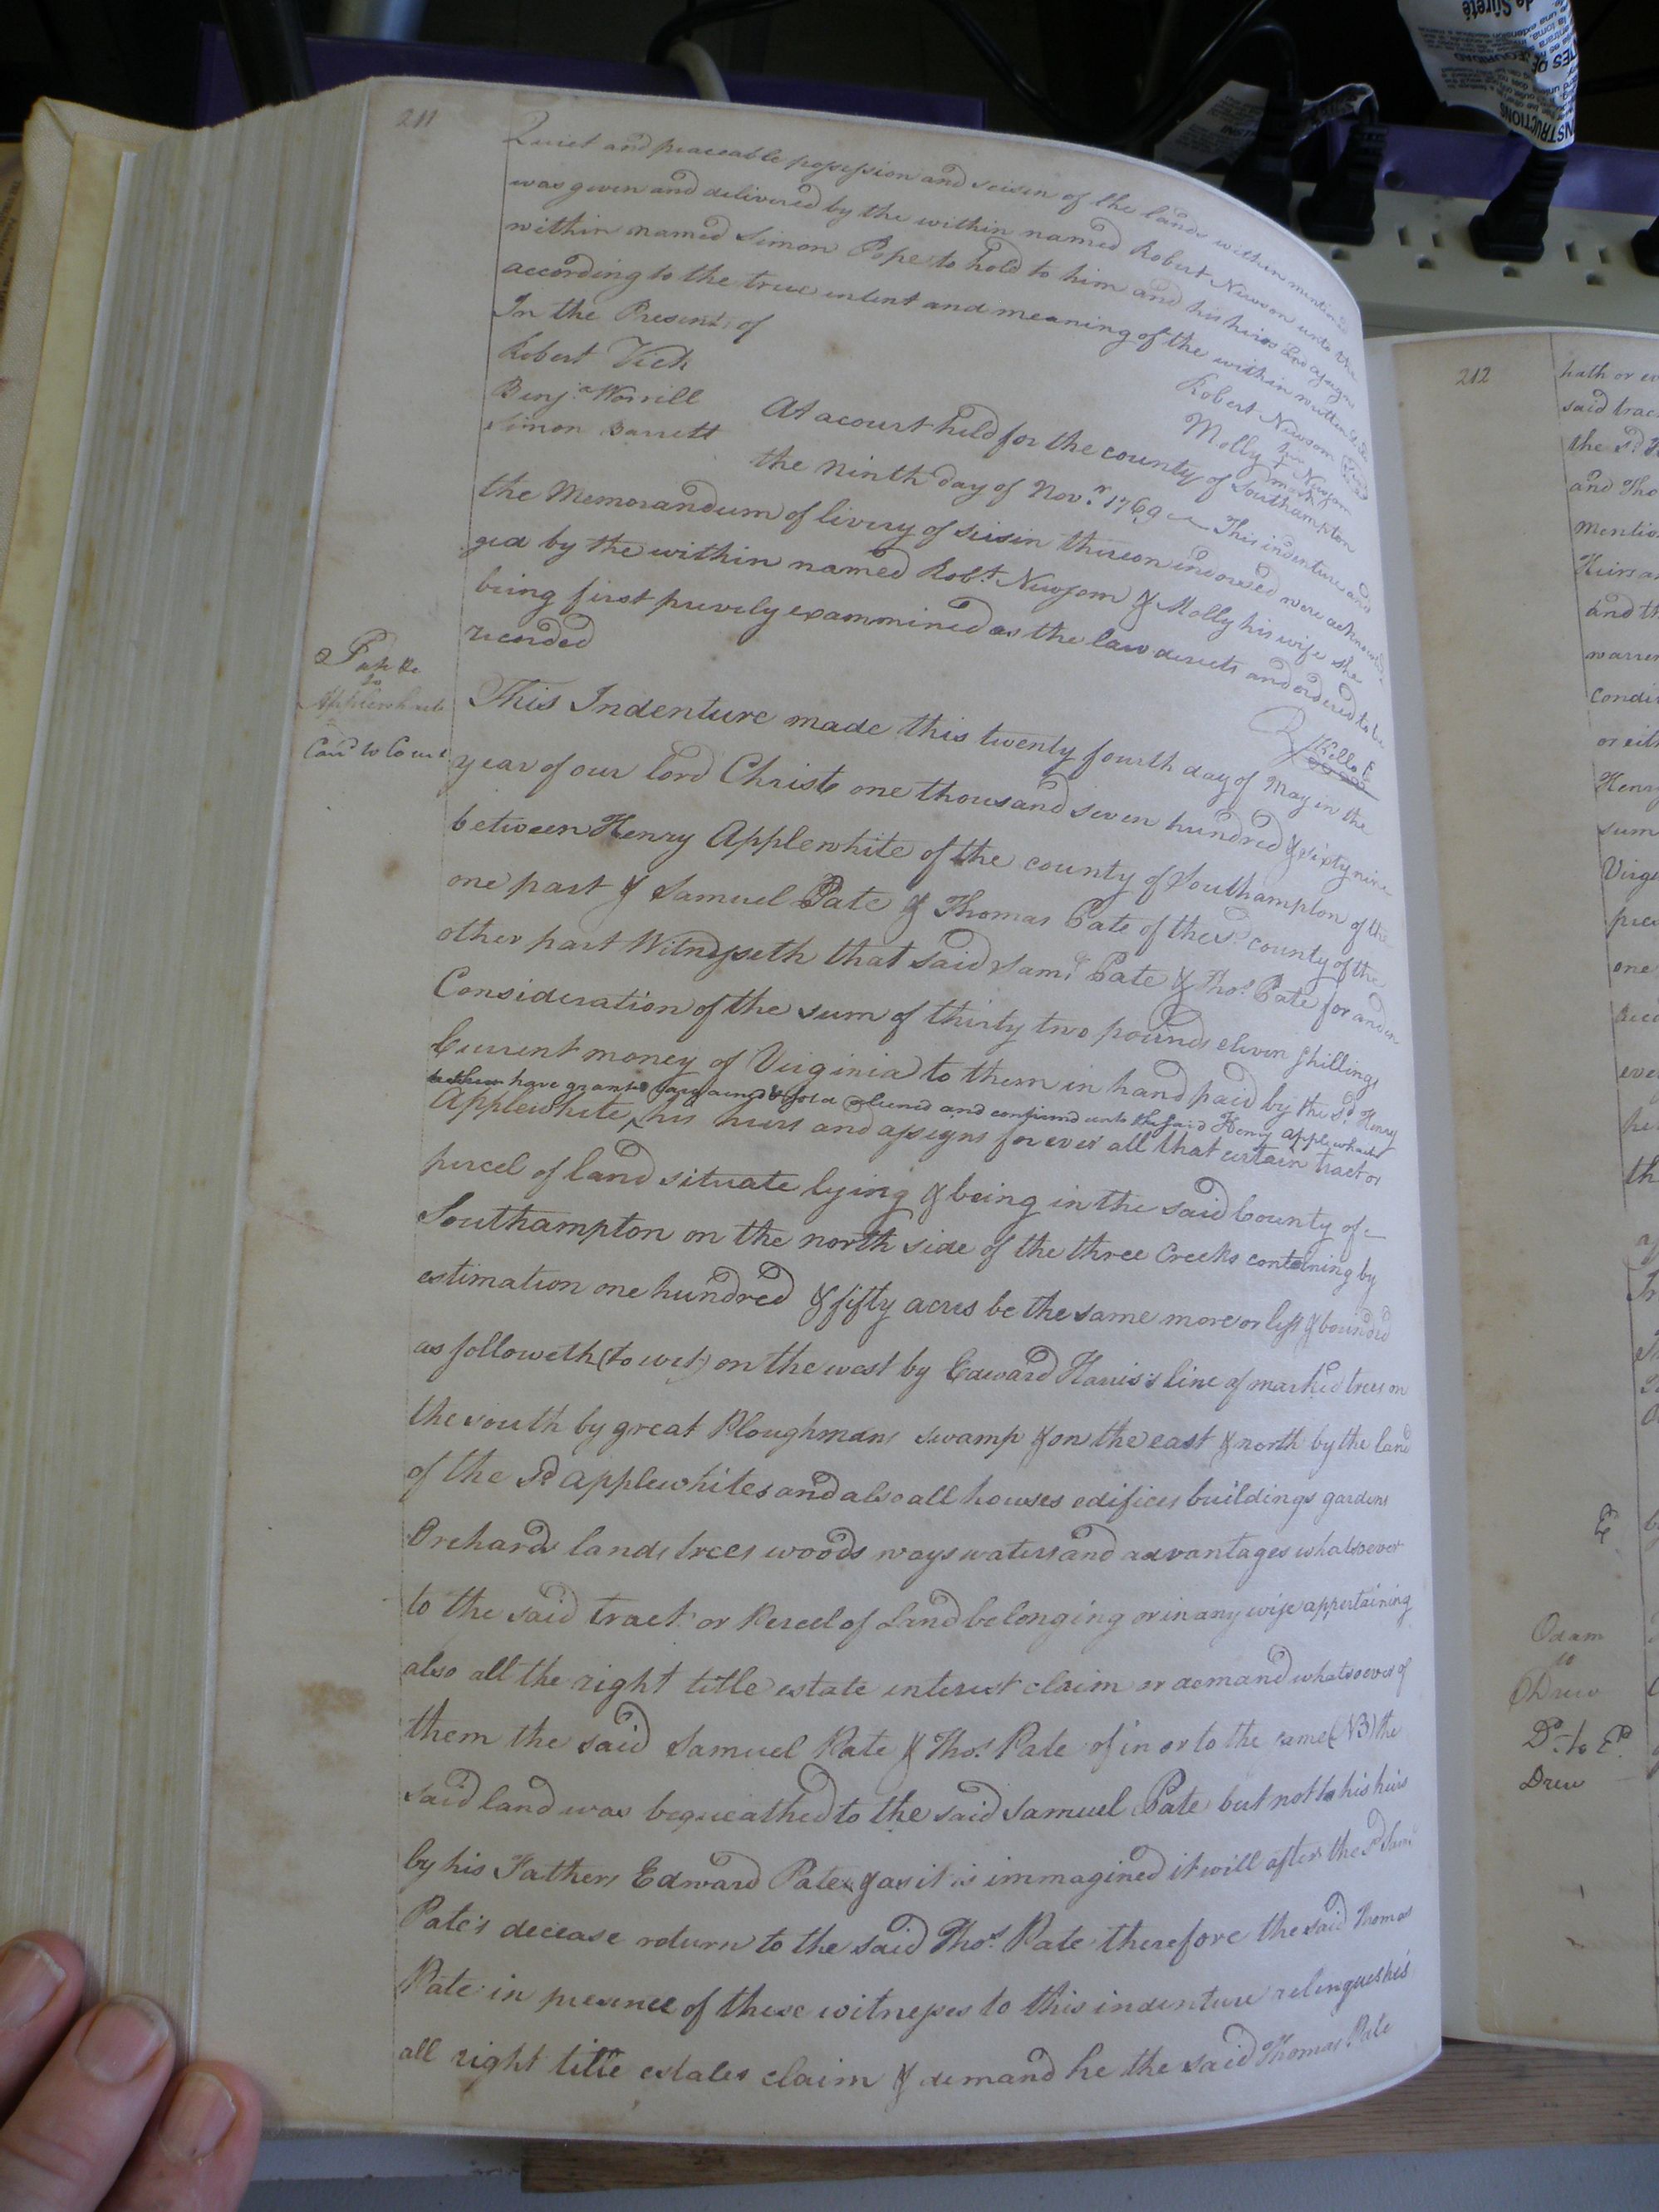 211
Quiet and peaceable possession and seisin of the lands within mentioned
was given and delivered by the within named Robert Newsom unto the
within named Simon Pope to hold to him and his heirs and assigns
according to the true intent and meaning of the within written
In the Presents of
Robert Vick
Benja Worrill
Simon Barrett
Robert Newsom
her
Molly + Newsom
mark
At a court held for the county of Southampton
the ninth day of Novr. 1769 This indenture and
the Memorandum of livery of seisin thereon indorsed were acknowled
ged by the within named Robt Newsom & Molly his wife she
being first privily exammined as the law derects and ordered to be
recorded
Pate &c
to
Applewhaite
Card to Court
This Indenture made this twenty fourth day of May in the
year of our lord Christ one thousand seven hundred & sixty nine
between Henry Applewhite of the county of Southampton of the
one part & Samuel Pate & Thomas Pate of the sd. county of the
other part Witnesseth that said Saml. Pate & Thos. Pate for and in
Consideration of the sum of thirty two pounds eleven shillings
Current money of Virginia to them in hand paid by the sd. Henry
have granted bargained & sold aliened and confirmd unto the said Henry applewhaite
Applewhite ‸ his heirs and assigns for ever all that certain tract or
percel of land situate lying & being in the said County of
Southampton on the north side of the three Creeks containing by
estimation one hundred & fifty acres be the same more or less & bounded
as followeth (to wit) on the west by Edward Harris's line of marked trees on
the south by great Ploughmans swamp & on the east & north by the land
of the sd applewhites and also all houses edifices buildings gardens
Orchards lands trees woods ways waters and advantages whatsoever
to the said tract or Percel of Land belonging or in any wise appertaining
also all the right title estate interest claim or demand whatsoever of
them the said Samuel Pate & Thos. Pate of in or to the same (NB) the
said land was bequeathed to the said Samuel Pate but not to his heirs
by his Fathers Edward Pate & as it is immagined it will after the sd Saml
Pate's decease return to the said Thos. Pate therefore the said Thomas
Pate in presence of these witnesses to this indenture relinques his
all right title estates claim & demand he the said Thomas Pate
212
hath or
said trac
the sd.
and Tho
mentio
Heirs an
and th
warren
Condi
or eith
Henry
sum
Virgi
one
eve
th
Odam
to
Drew
Dd. to Ed.
Drew